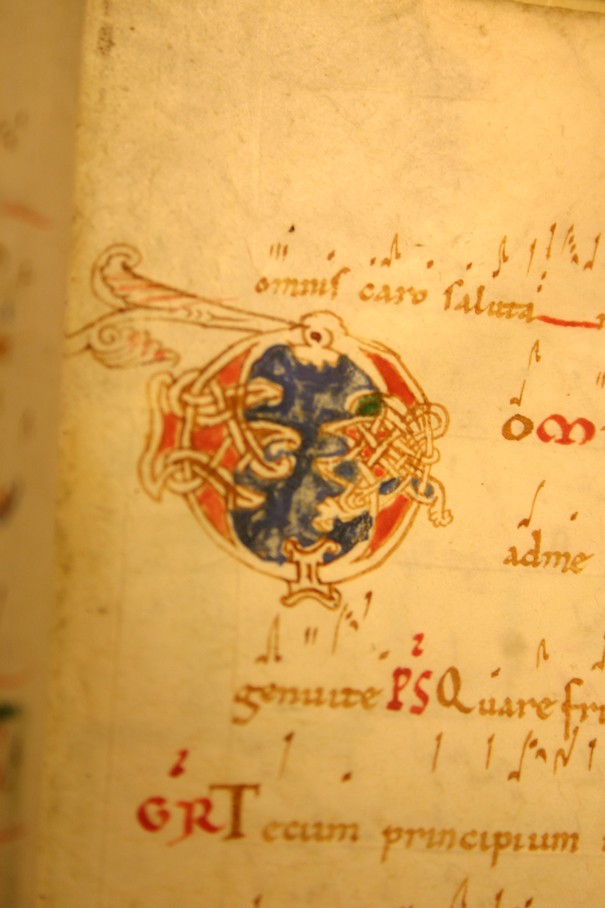 omnis caro saluta
OM
adme
genuite PS Quare fr
GR Tecum principium